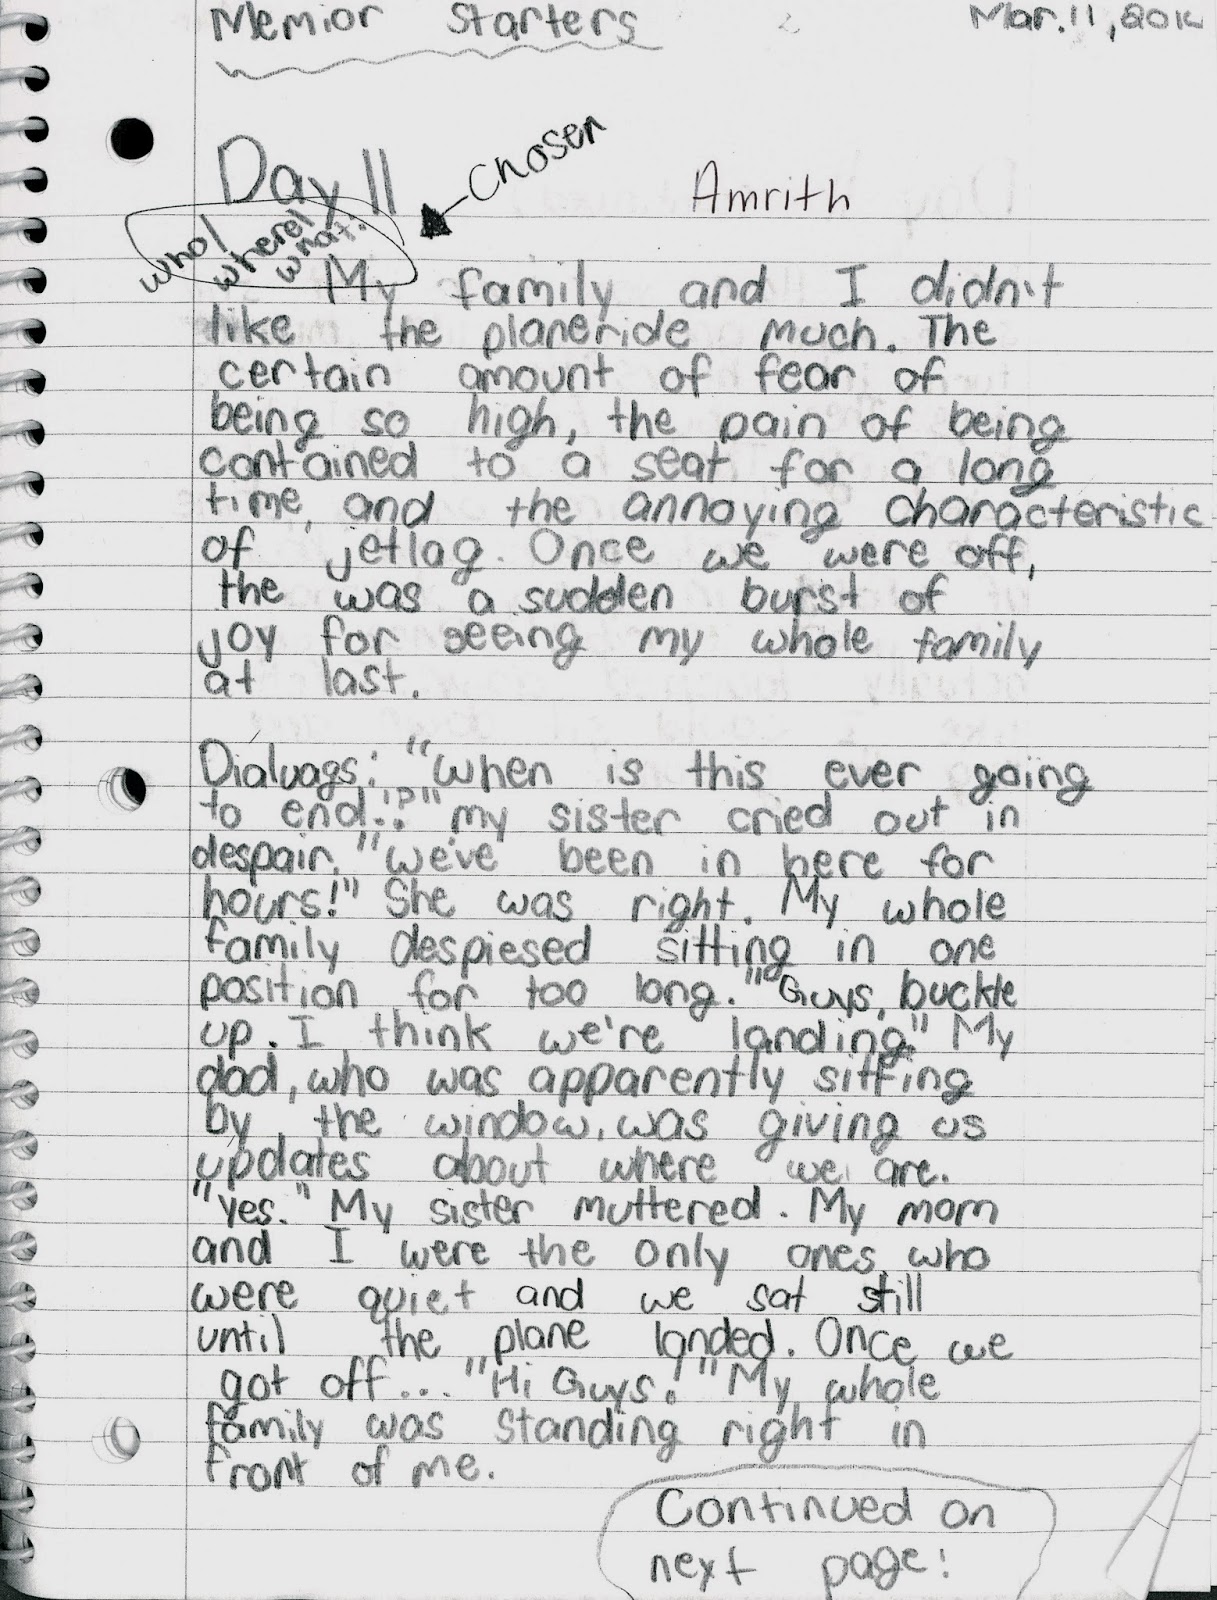 Memior Starters
Mar. 11, 201
Day 11
Chosen
Amrith
who/
where/
what:
My family and I didn't
like the planeride much. The
certain amount of fear of
being so high, the pain of being
contained to a seat for a long
time, and the annoying characteristic
of jetlag. Once we were off,
the was a sudden burst of
joy for seeing my whole family
at last.
Dialuags: "When is this ever going
to end!?" my sister cried out in
despair. "We've been in here for
hours!" She was right. My whole
family despiesed sitting in one
position for too long. "Guys, buckle
up. I think we're landing." My
dad, who was apparently sitting
by the window, was giving us
updates about where we are.
"Yes." My sister muttered. My mom
and I were the only ones who
were quiet and we sat still
until the plane landed. Once we
got off... "Hi Guys!" My whole
family was standing right in
front of me.
Continued on
next page!